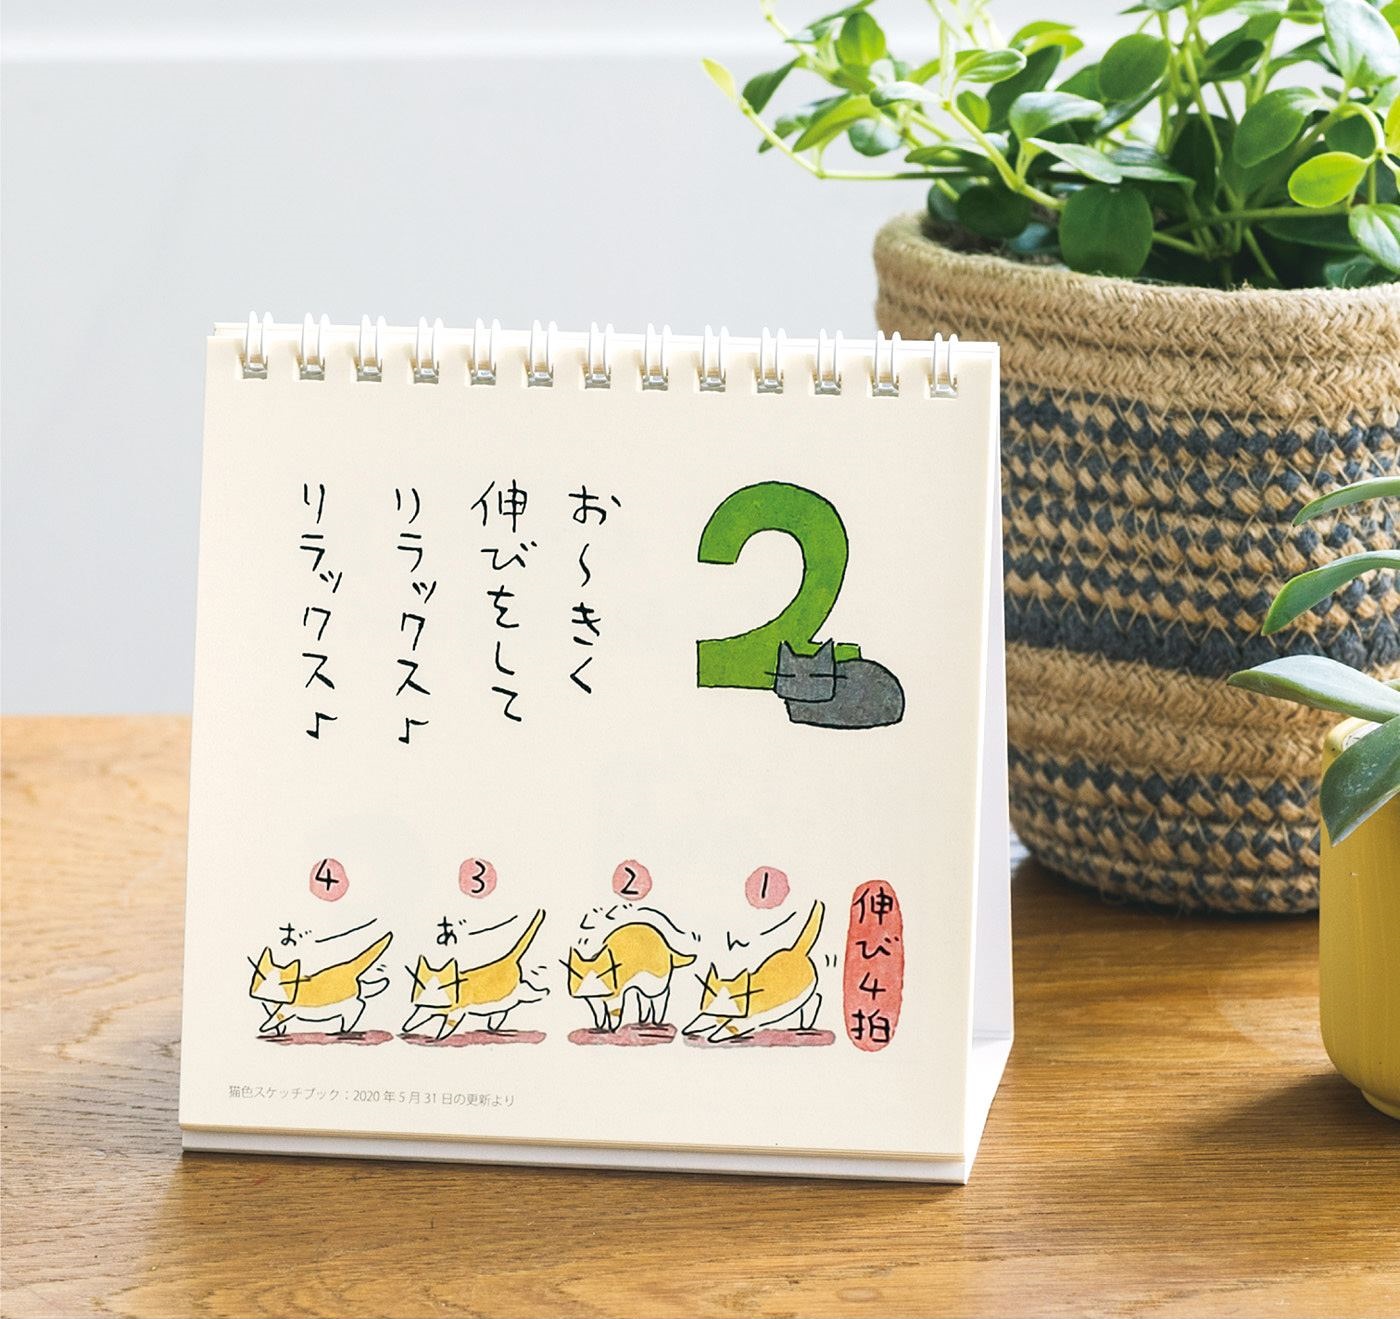 2
お〜きく
伸びをして
リラックス♪
リラックス♪
伸び4拍
1
ん
2
ぐぐ
3
あ゛
4
お゛
猫色スケッチブック：2020年5月31日の更新より